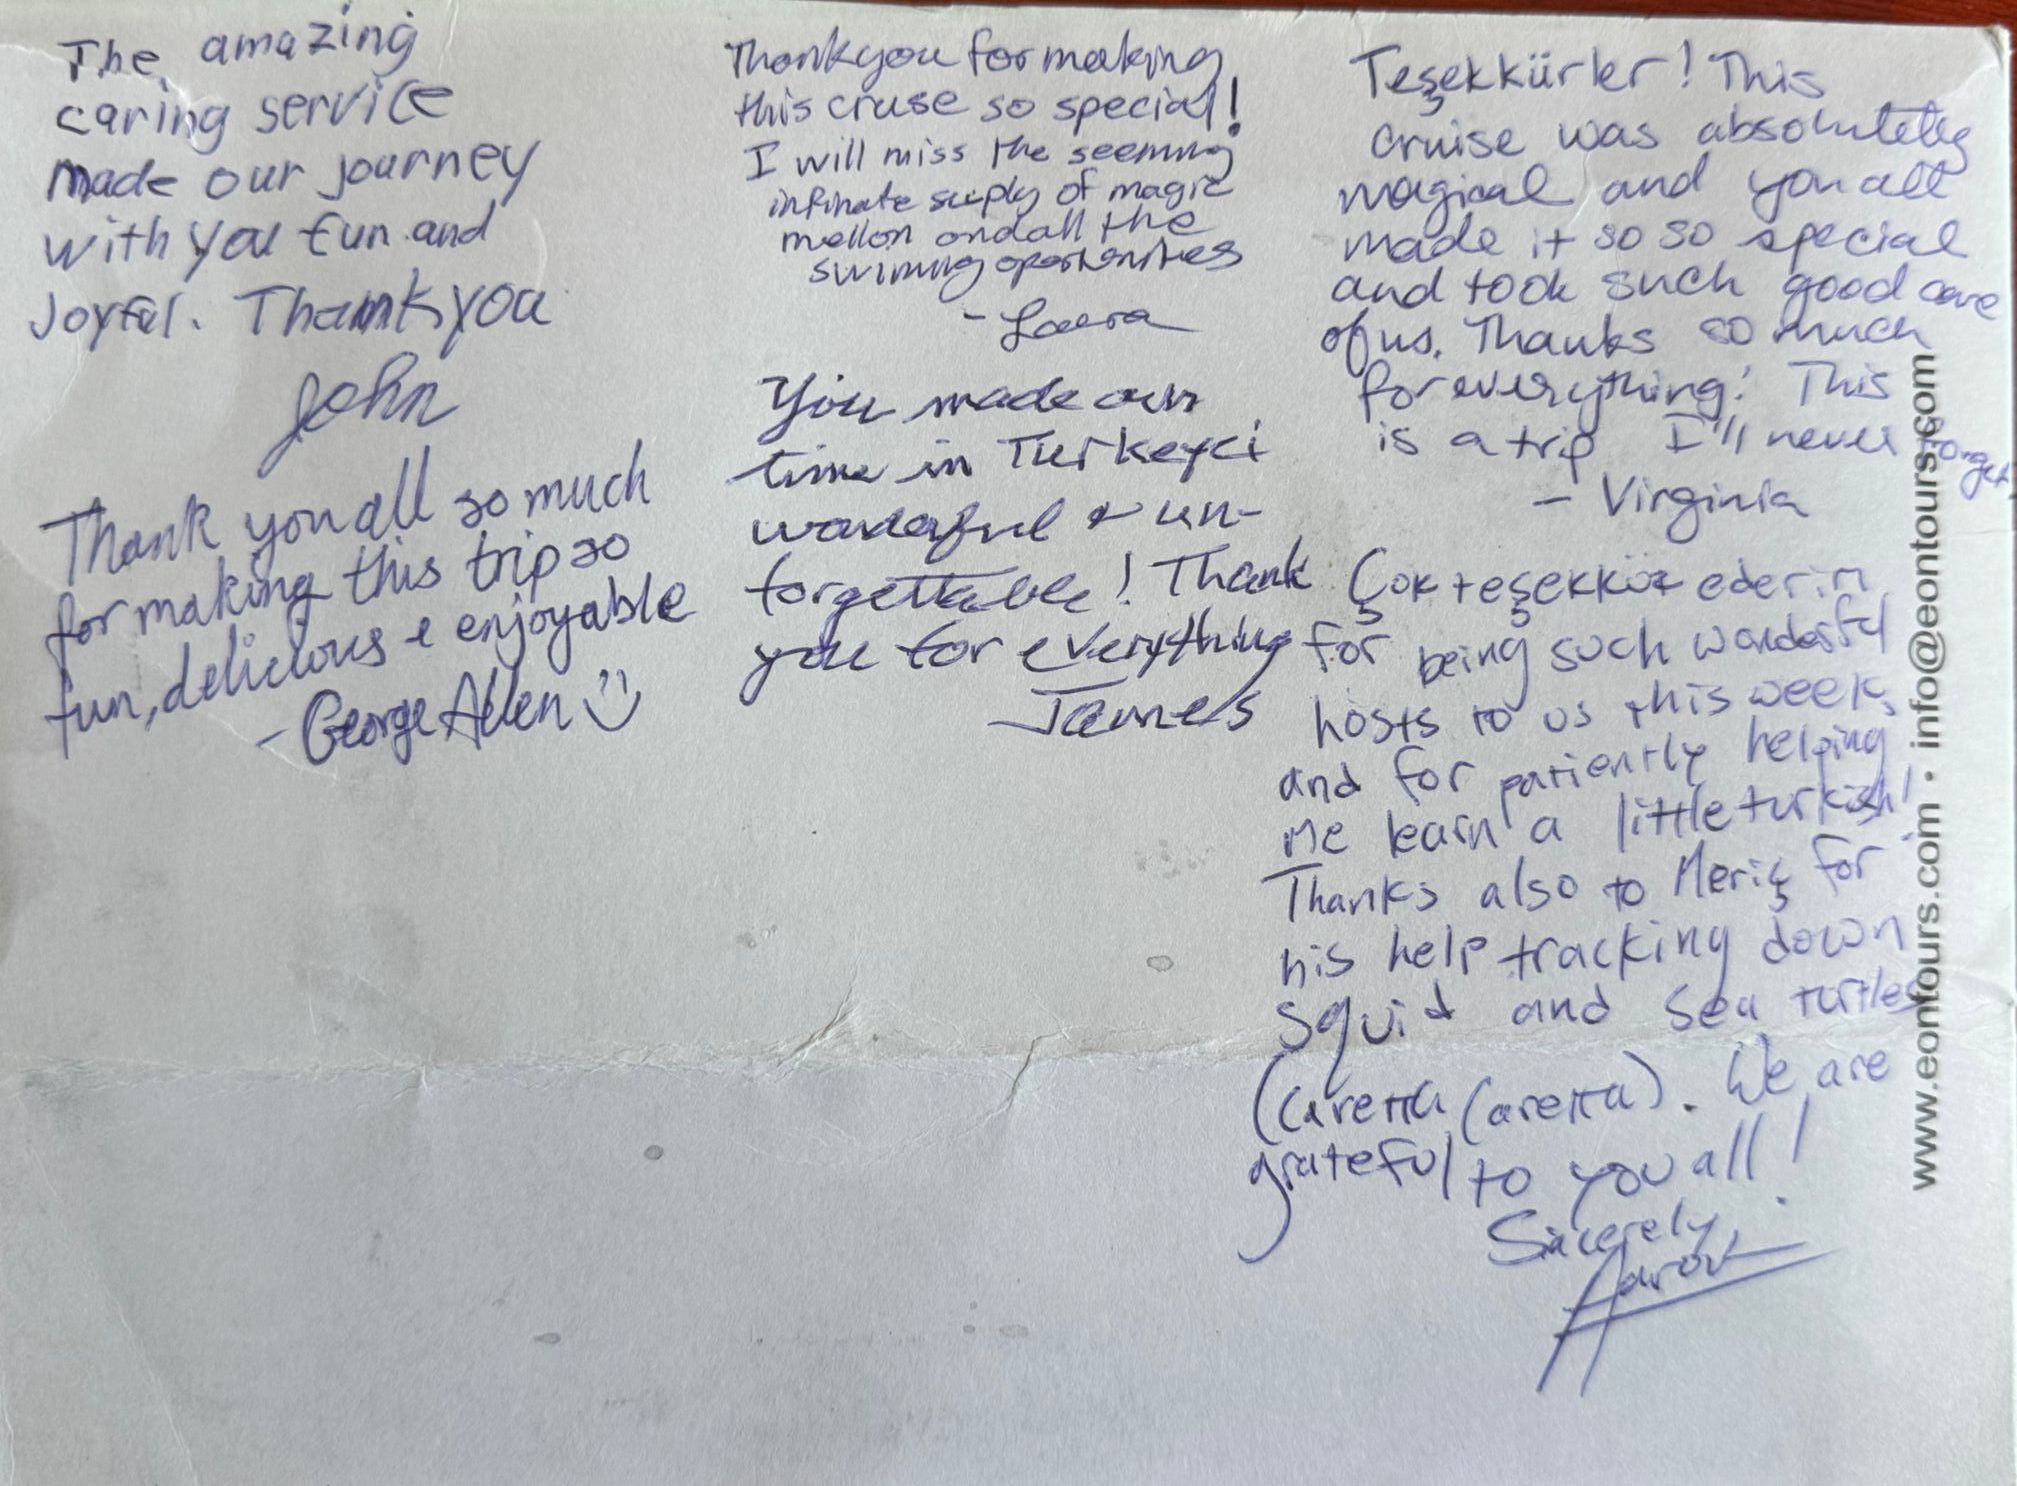 The amazing
caring service
made our journey
with you fun and
Joyful. Thank you
John
Thank you all so much
for making this trip so
fun, delicious & enjoyable
- George Allen
Thank you for making
this cruse so special!
I will miss the seeming
infinate supply of magic
mellon and all the
swiming oportunities
- Laura
You made our
time in
wonderful & un-
forgettable! Thank
you for everything
James
Teşekkürler! This
cruise was absolutely
magical and you all
made it so so special
and took such good care
of us. Thanks so much
for everything! This
is a trip I'll never forget
- Virginia
Çok teşekkür ederim
for being such wonderful
hosts to us this week,
and for patiently helping
me learn a little turkish!
Thanks also to Meriç for
his help tracking down
squid and sea turtles
(Caretta Caretta). We are
grateful to you all!
Sincerely,
Aaron
www.eontours.com • info@eontours.com